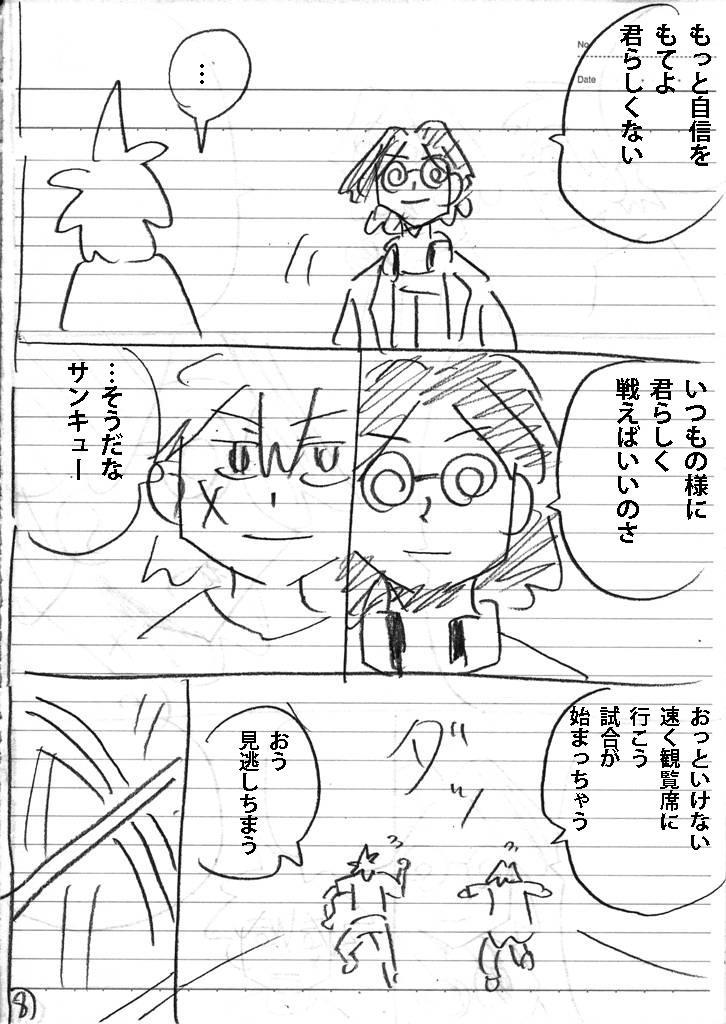 もっと自信を
もてよ
君らしくない
…
No.
Date
いつもの様に
君らしく
戦えばいいのさ
…そうだな
サンキュー
おっといけない
速く観覧席に
行こう
試合が
始まっちゃう
ダッ
おう
見逃しちまう
8